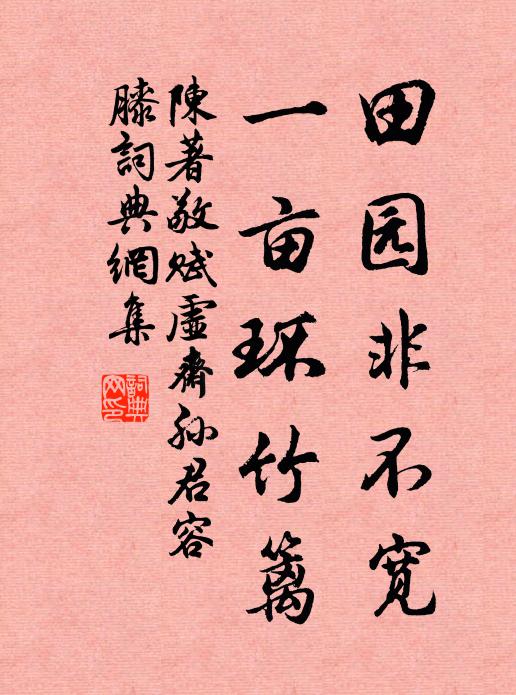 田园非不宽
一亩环竹篱
陳著敬賦虛齋孙君容
膝詞典網集
詞典
网印